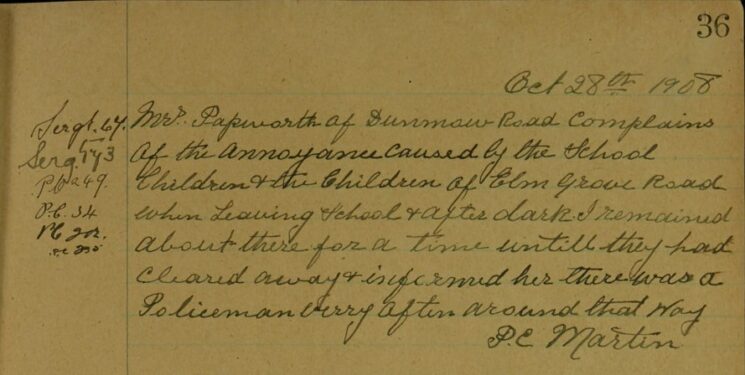 36
Oct 28th 1908
Sergt. 64.
Sergt 73
P.C. 249.
P.C. 34
PC 202.
P.C. 230
Mrs. Papworth of Dunmow Road Complains
of the Annoyance Caused by the School
Children & the Children of Elm Grove Road
when Leaving School & after dark I remained
about there for a time untill they had
Cleared away & informed her there was a
Policeman verry often around that Way
P.C Martin